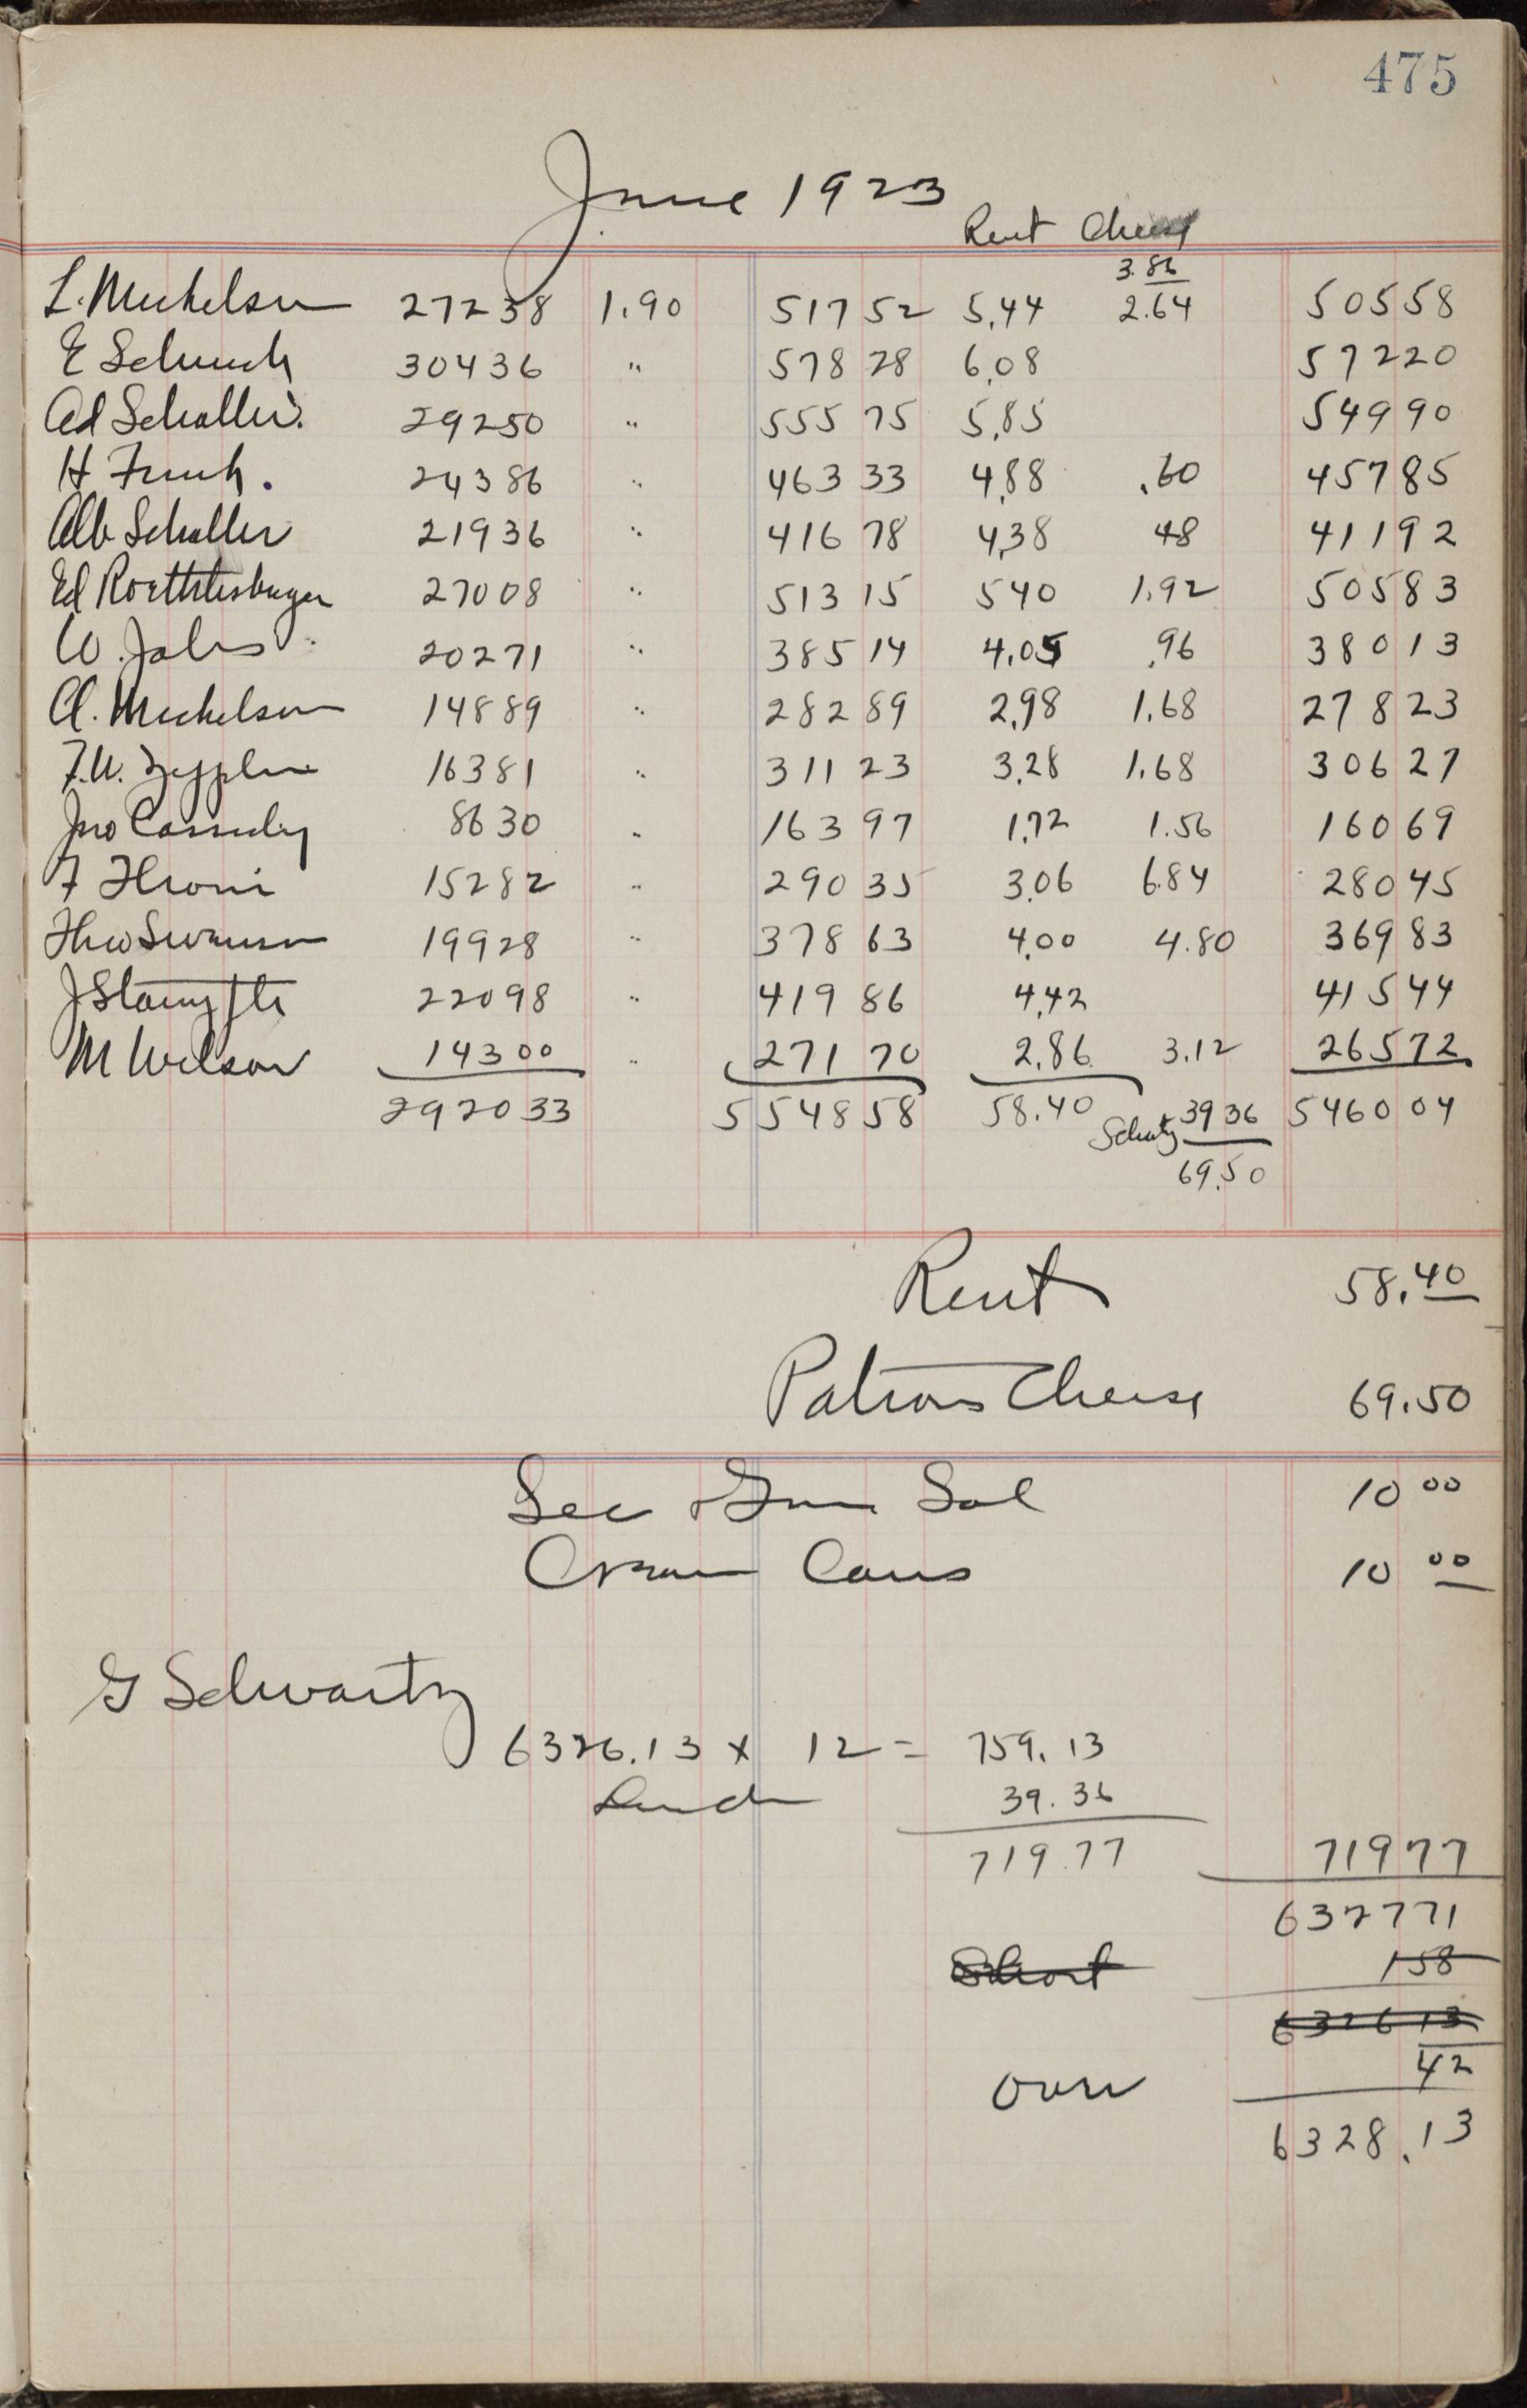 475
June 1923
Rent Cheese
3.86
L. Meekelson 27238 1.90 517 52 5.44 2.64 505 58
E Schuch 30436 " 578 28 6.08 572 20
Ad Schaller. 29250 " 555 75 5.85 549 90
H Funk. 24386 " 463 33 4.88 .60 457 85
Alb Schaller 21936 " 416 78 4.38 48 411 92
Ed Roethlisberger 27008 " 513 15 5 40 1.92 505 83
W. Jahs 20271 " 385 14 4.05 .96 380 13
A. Meekelson 14889 " 282 89 2.98 1.68 278 23
F.W. 16381 " 311 23 3.28 1.68 306 27
Jno Cassidy 8630 " 163 97 1.72 1.56 160 69
F 15282 " 290 35 3.06 6.84 280 45
Theo Swanson 19928 " 378 63 4.00 4.80 369 83
J Stampfli 22098 " 419 86 4.42 415 44
M Wilson 14300 " 271 70 2.86 3.12 265 72
292033 5548 58 58.40 39 36 5460 04
69.50
Rent 58.40
Patrons Cheese 69.50
Sec Sal 10 00
Cream Cans 10 00
G Schwartz
6326.13 x 12 = 759.13
39.36
719.77 719 77
6327 71
Short 1 58
6326 13
42
Over
6328.13